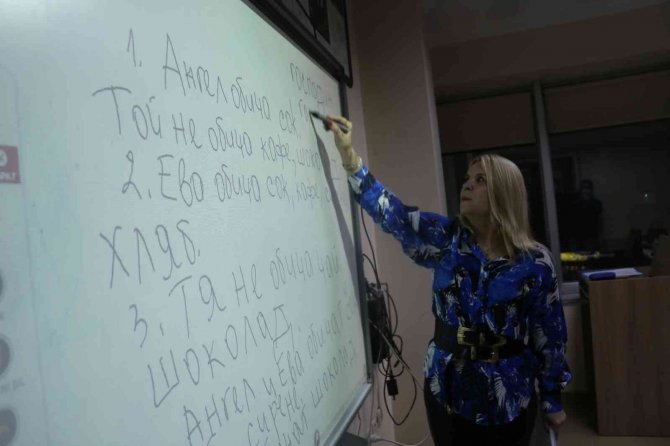 1. Ангел обича сок,
Той не обича кафе, шоко
2. Ева обича сок, кафе,
хляб.
3. Тя не обича чай
шоколад.
Ангел и Ева обичат
сирене
шоколад